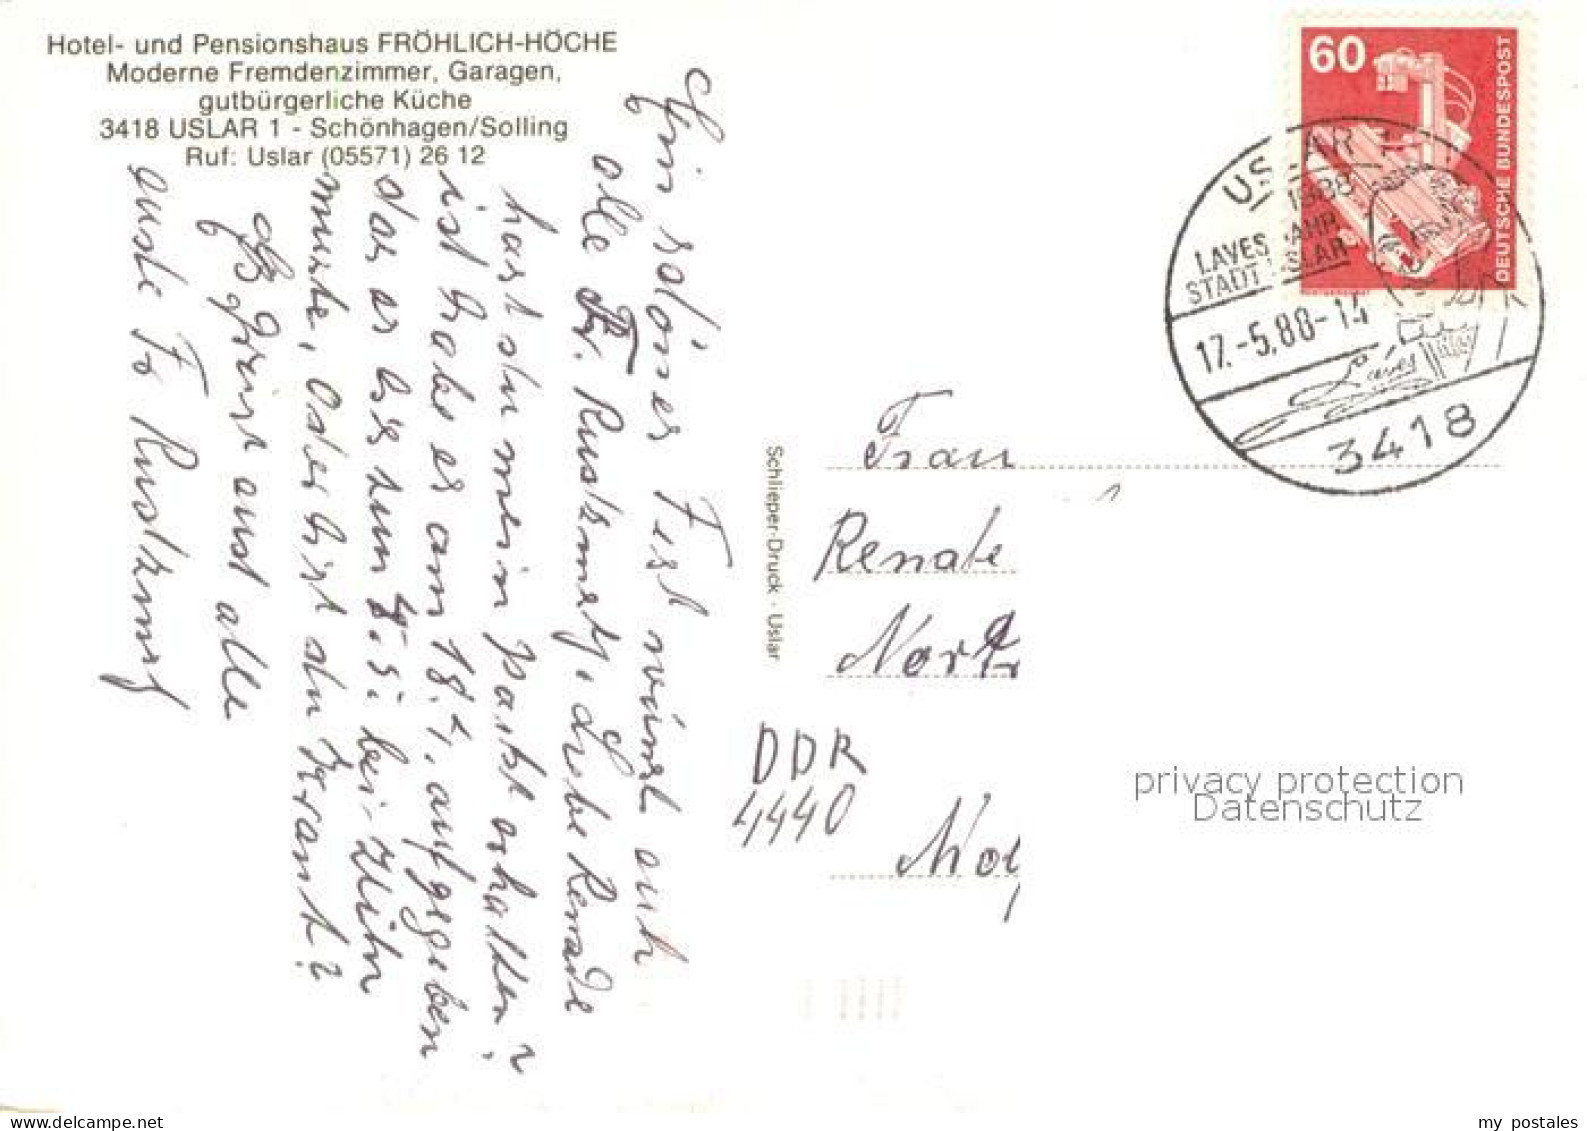 Hotel- und Pensionshaus FRÖHLICH-HÖCHE
Moderne Fremdenzimmer, Garagen,
gutbürgerliche Küche
3418 USLAR 1 - Schönhagen/Solling
Ruf: Uslar (05571) 26 12
Ein schönes Fest wünscht euch
alle Fr. Rustemey, Liebe Renade
hast du mein Packet erhalten?
ist habe es am 18.4. aufgegeben
das es bis zum 8.5. bei
wurde, oder bist du Krank?
Es Grüst aust alle
auste Fr Rust
Schlieper-Druck · Uslar
60
DEUTSCHE BUNDESPOST
USLAR 1
1988
LAVES JAHR
STADT USLAR
17.-5.88-14
Laves
3418
Frau
Renate
DDR
4440
privacy protection
Datenschutz
my postales